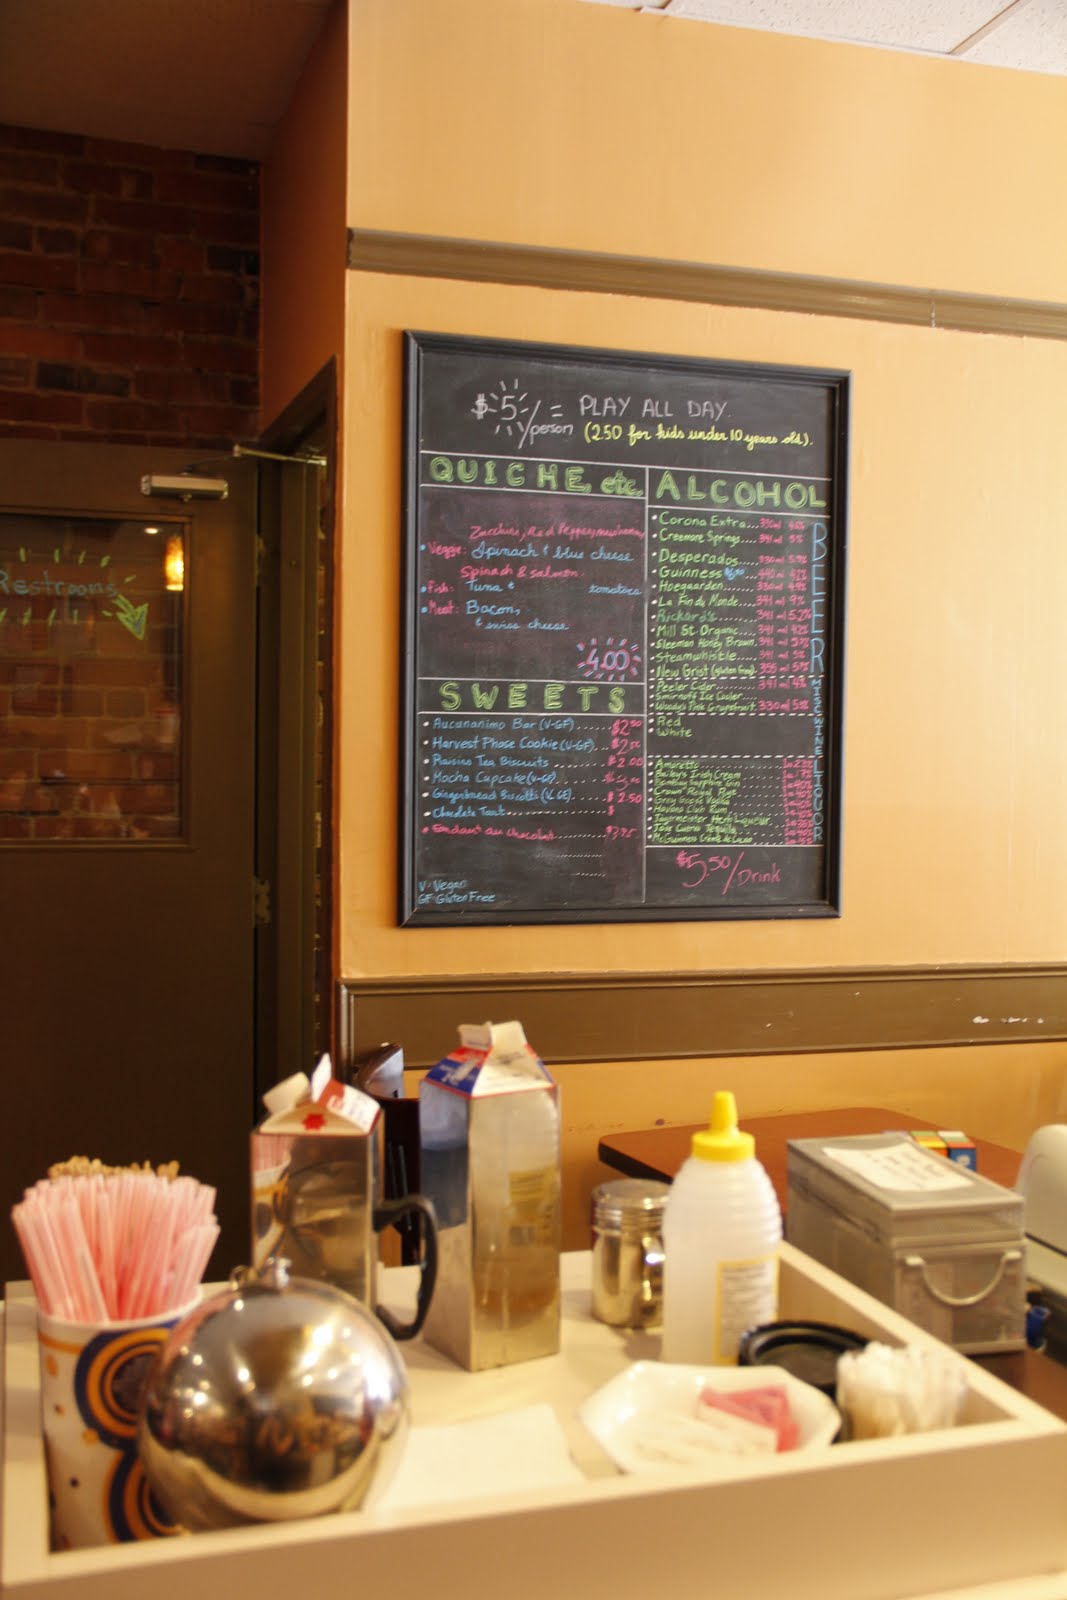 Restrooms
$5/person = PLAY ALL DAY.
(2.50 for kids under 10 years old).
QUICHE, etc.
Zucchini, Red Pepper, mushrooms
• Veggie: Spinach & blue cheese
Spinach & salmon
• Fish: Tuna & tomatoes
• Meat: Bacon,
& swiss cheese
4.00
SWEETS
• Aucunanimo Bar (V-GF)...... $2.50
• Harvest Phase Cookie (V-GF)...
• Raisins Tea Biscuits ...... $2.00
• Mocha Cupcake (V-GF)
• Gingerbread Biscotti (V, GF)...... $2.50
• Chocolate Tart...... $
• Fondant au chocolat...... $3.75
V: Vegan
GF: Gluten Free
ALCOHOL
BEER
• Corona Extra... 330ml 4.6%
• Creemore Springs.... 341 ml 5%
• Desperados... 330 ml 5.9%
• Guinness 440 ml 4.2%
• Hoegaarden... 330 ml 4.9%
• La Fin du Monde... 341 ml 9%
• Rickard's... 341 ml 5.2%
• Mill St. Organic... 341 ml 4.2%
• Sleeman Honey Brown. 341 ml
• Steamwhistle.... 341 ml 5%
• New Grist (gluten free). 355 ml
MISC
• Peeler Cider... 341 ml
• Smirnoff Ice Cooler...
• Woody's Pink Grapefruit. 330 ml
WINE
• Red
• White
LIQUOR
• Amaretto
• Bailey's Irish Cream
• Bombay Sapphire Gin
• Crown Royal Rye
• Grey Goose Vodka
• Havana Club Rum
• Jagermeister Herb Liqueur
• Jose Cuervo Tequila
• McGuinness Crème de Cacao
$5.50/Drink